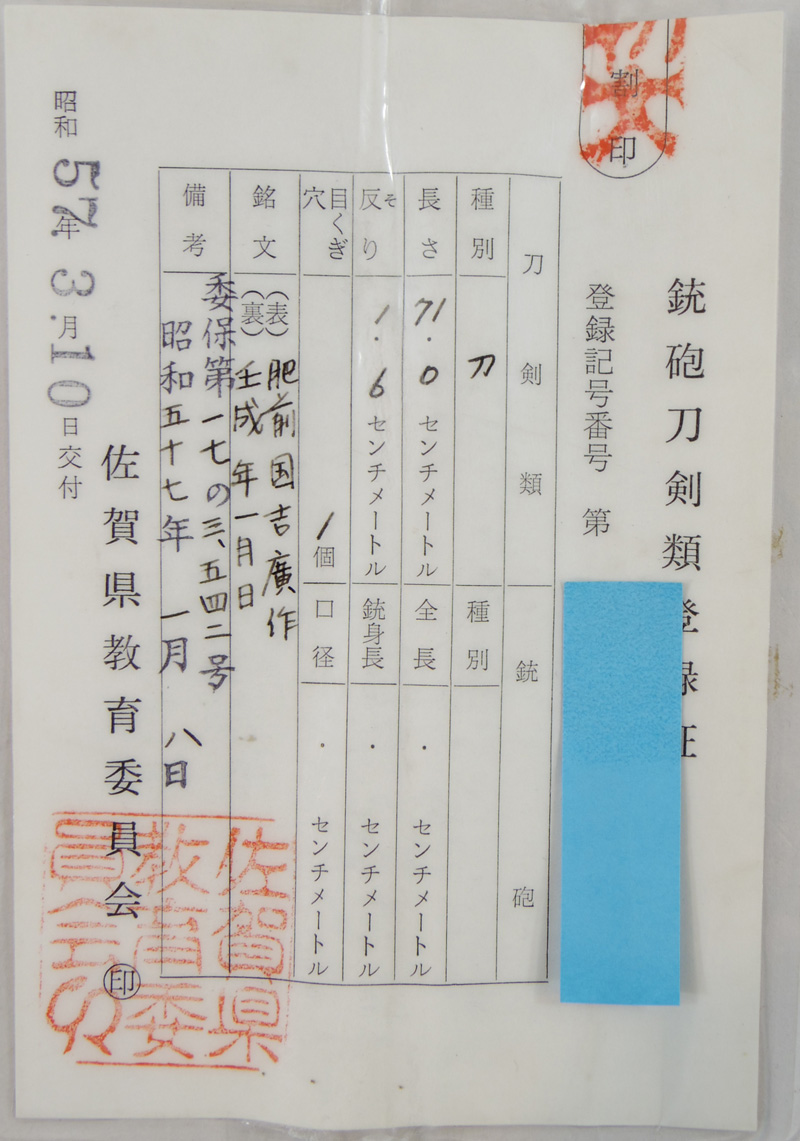 割印
銃砲刀剣類登録証
登録記号番号 第
刀剣類
銃砲
種別 刀
種別
長さ 71.0センチメートル
全長 ．センチメートル
そり
反り 1.6センチメートル
銃身長 ．センチメートル
目くぎ穴 1個
口径 ．センチメートル
銘文
（表）肥前国吉廣作
（裏）壬戌年一月日
備考
委保第一七の三、五四二号
昭和五十七年 一月 八日
佐賀県教育委員会 印
昭和57年3.月10日交付
佐賀県
教育委
員会の